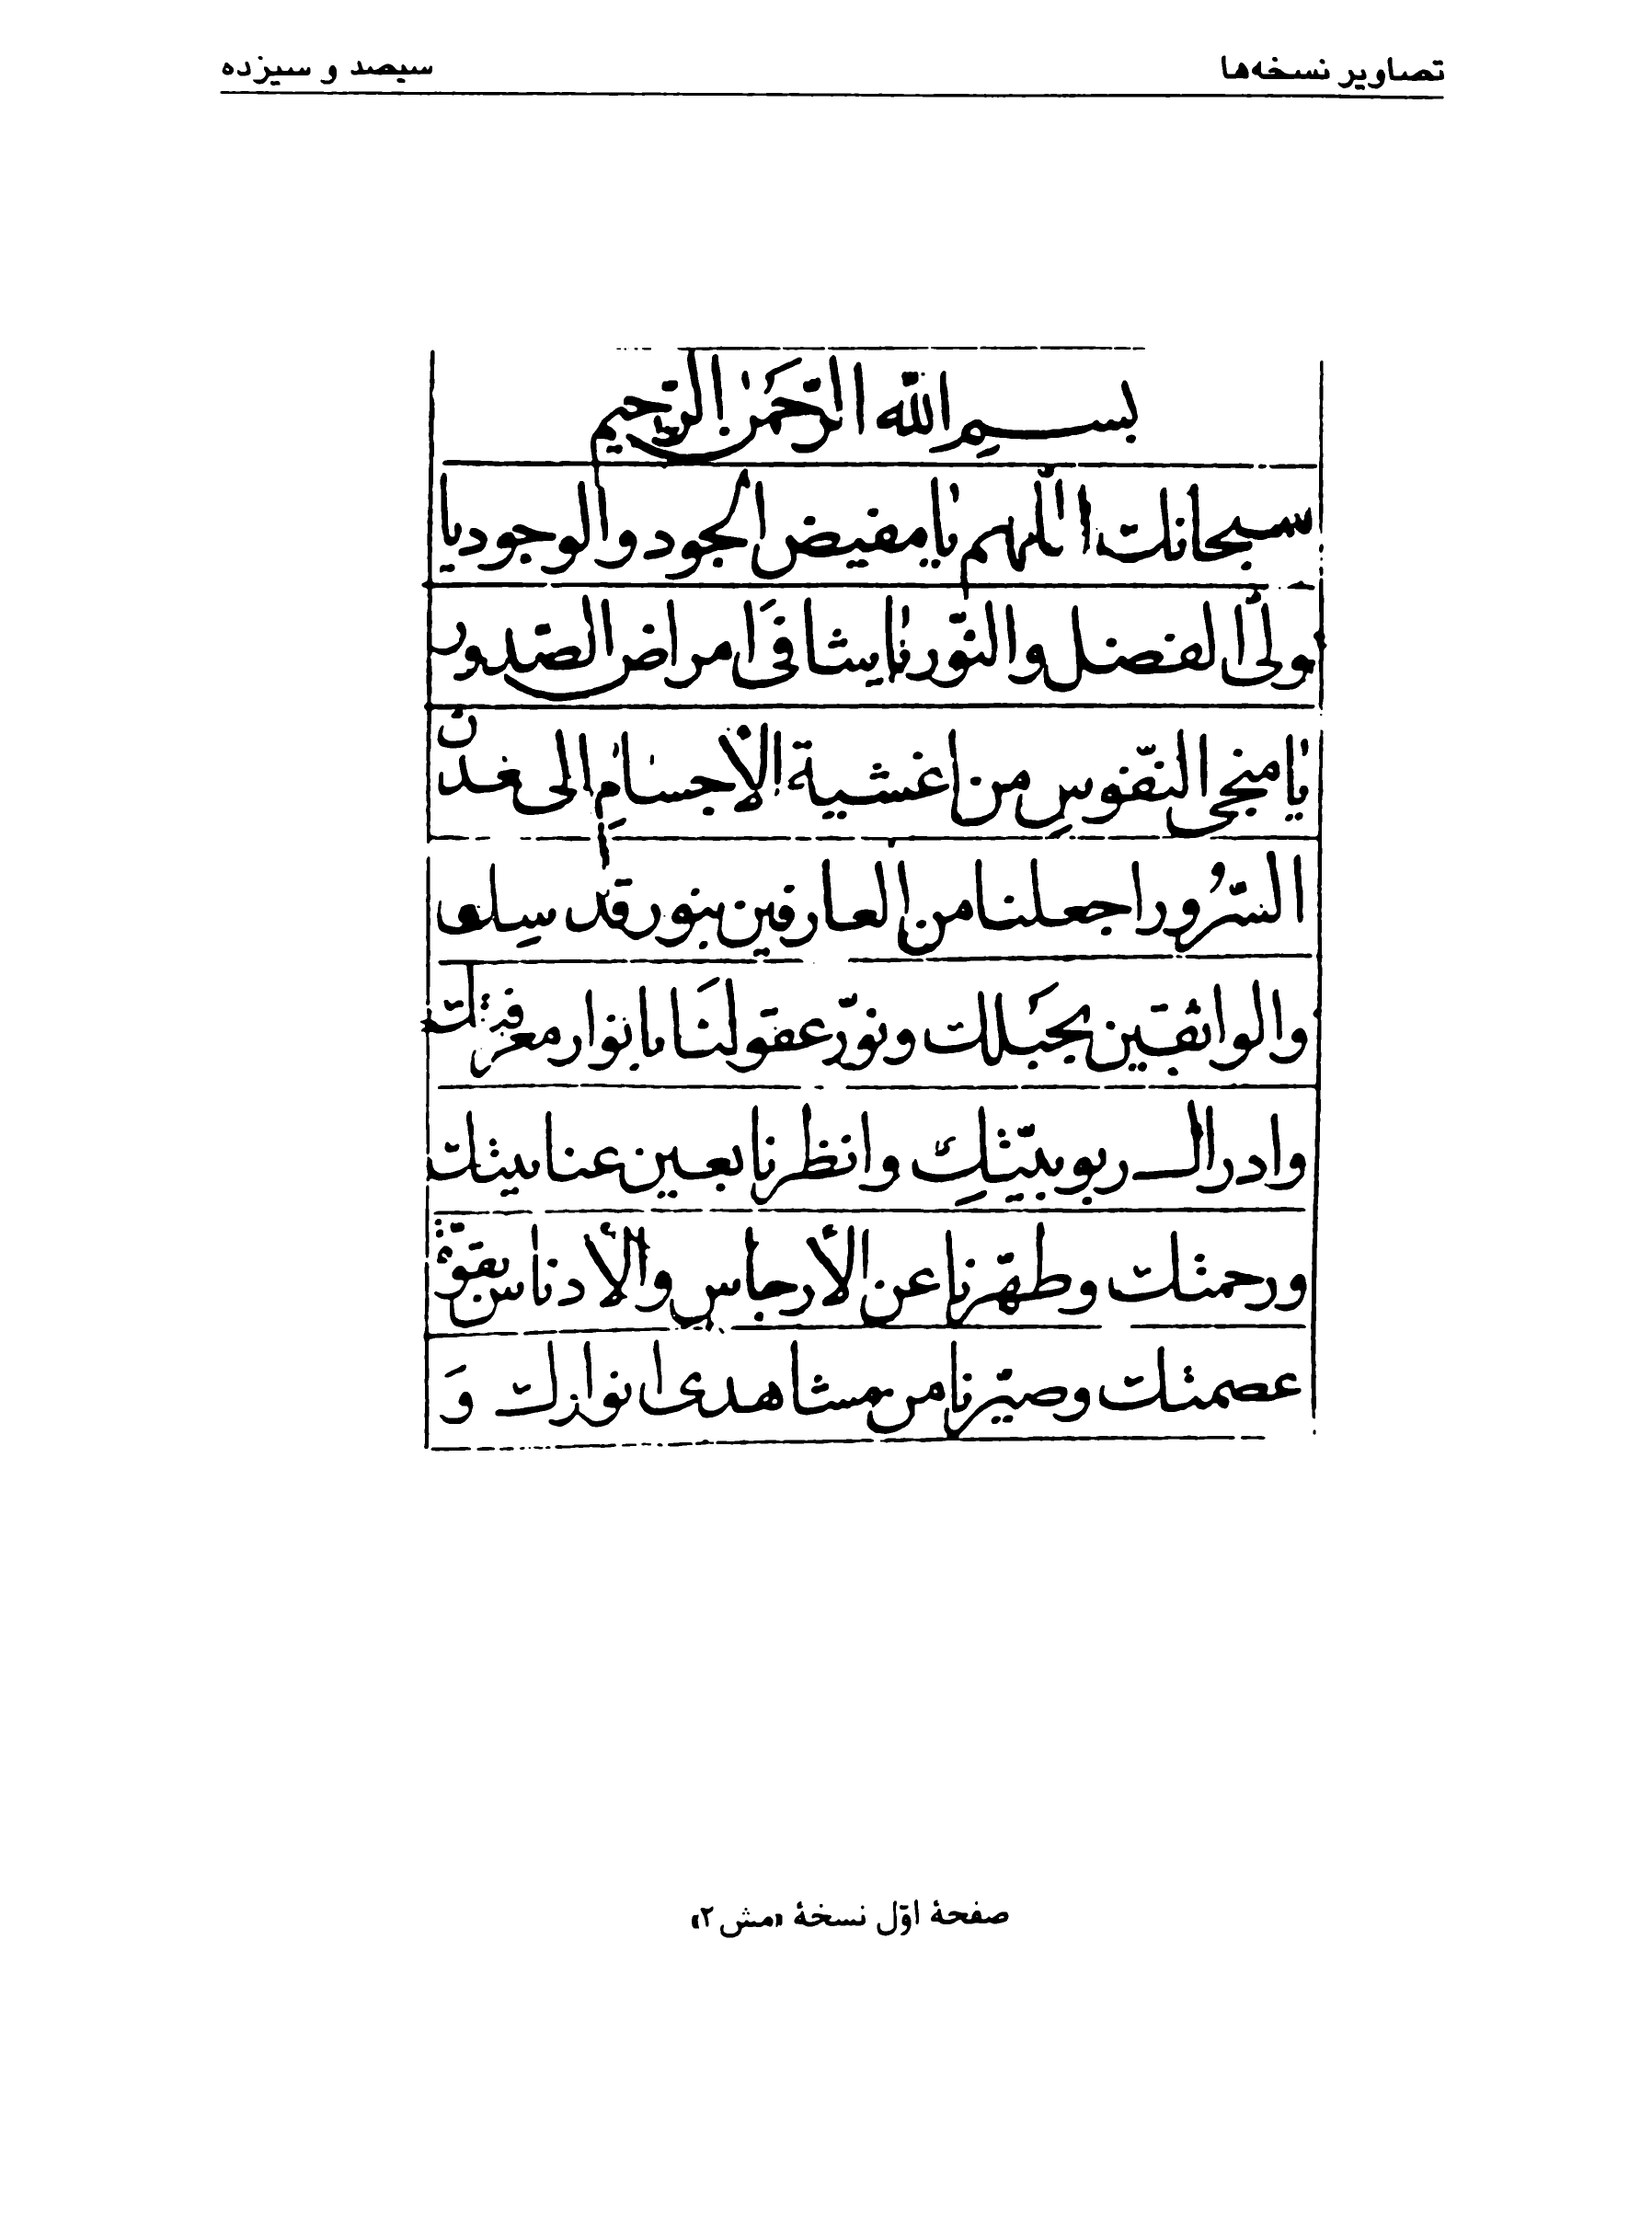 تصاویر نسخه‌ها
سیصد و سیزده
بسم الله الرحمن الرحیم
سبحانك اللهم یا مفیض الجود والوجود یا
ولی الفضل والنور یا شافی امراض الصدور
یا منجی النفوس من اغشیة الاجسام الی
السرور اجعلنا من العارفین بنور قدسك
والواثقین بحبلك ونور عقولنا بانوار معرفتك
وادراك ربوبیتك وانظرنا بعین عنایتك
ورحمتك وطهرنا عن الأرجاس والأدناس بقوة
عصمتك وصیرنا من مشاهدی انوارك وَ
صفحهٔ اوّل نسخهٔ «مش۲»